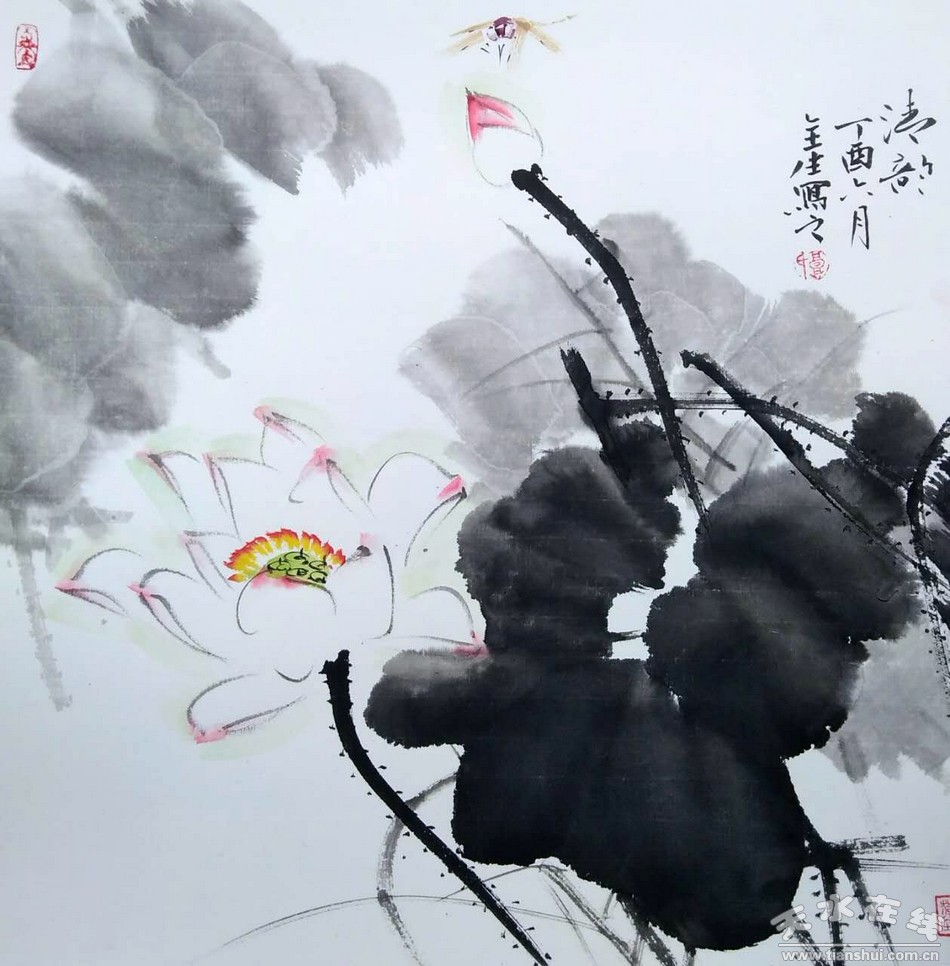 清韵
丁酉六月
全生寫之
天水在线
www.tianshui.com.cn